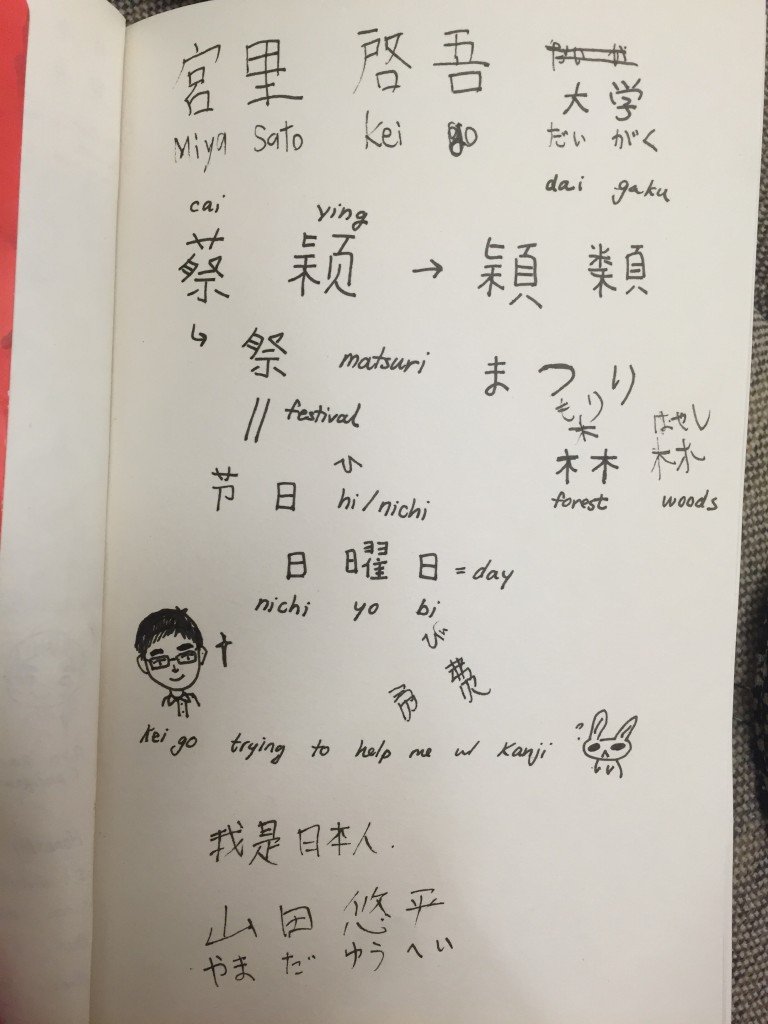 宮里 啓吾
Miya Sato Kei go
大学
だい がく
dai gaku
cai ying
蔡 颖 → 穎 類
祭 matsuri まつり
festival
もり はやし
森 林
forest woods
ひ
节日 hi/nichi
日曜日 = day
nichi yo bi
び
费
keigo trying to help me w/ Kanji
我是日本人.
山田悠平
やまだ ゆうへい